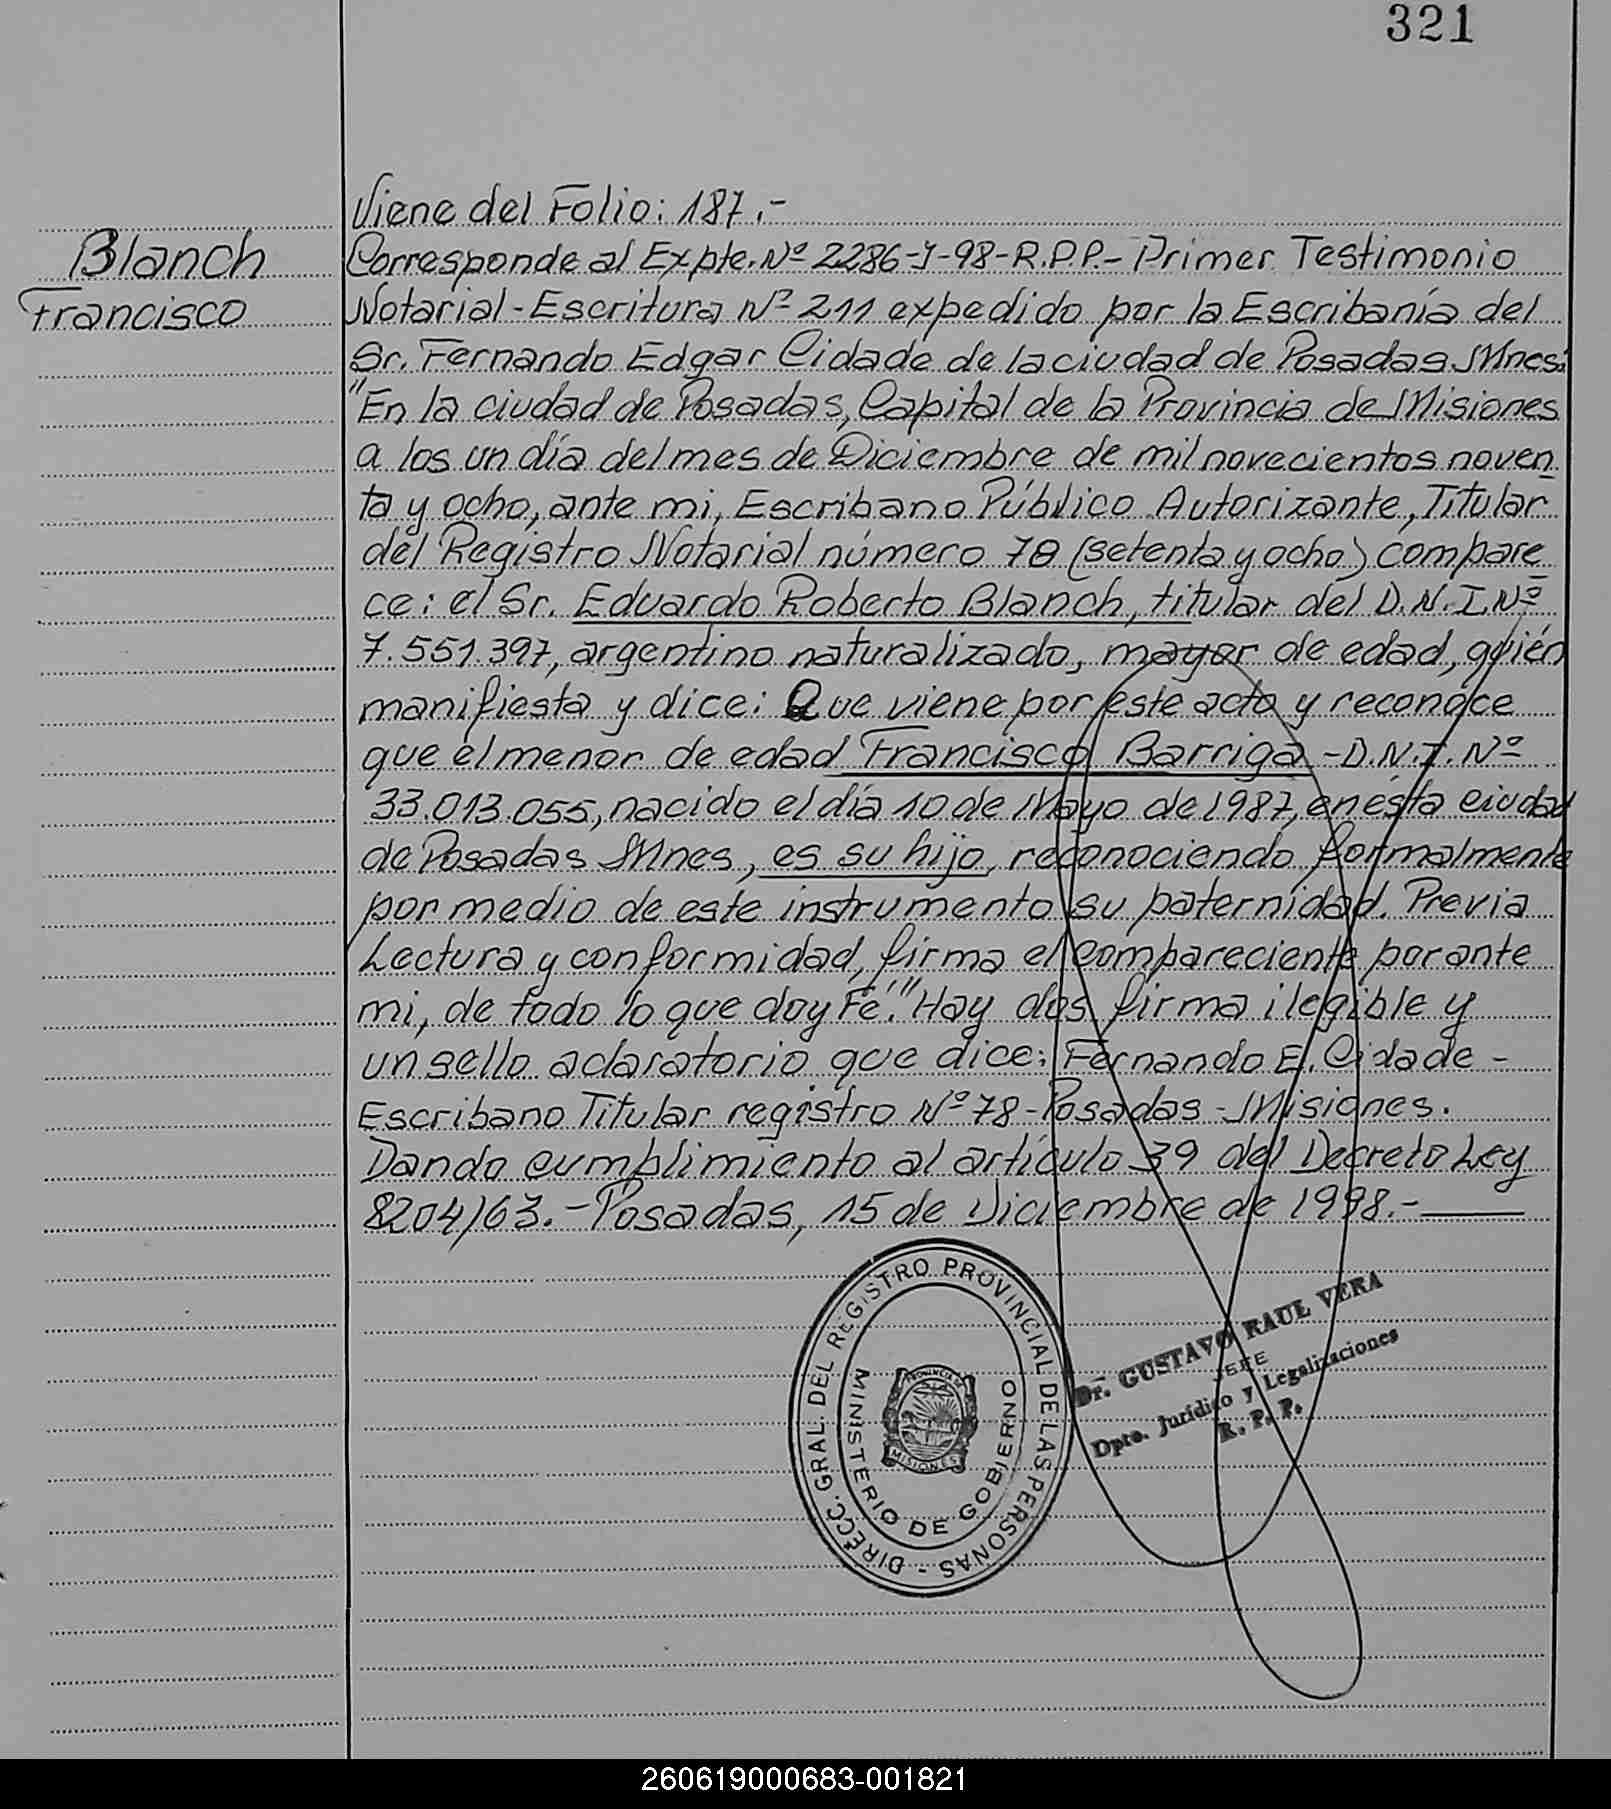 321
Viene del Folio: 187.-
Blanch
Francisco
Corresponde al Expte. Nº 2286-J-98-R.P.P.- Primer Testimonio
Notarial - Escritura Nº 211 expedido por la Escribanía del
Sr. Fernando Edgar Cidade de la ciudad de Posadas Mnes:
"En la ciudad de Posadas, Capital de la Provincia de Misiones
a los un día del mes de Diciembre de mil novecientos noven
ta y ocho, ante mi, Escribano Público Autorizante, Titular
del Registro Notarial número 78 (setenta y ocho) compare
ce: el Sr. Eduardo Roberto Blanch, titular del D.N.I. Nº
7.551.397, argentino naturalizado, mayor de edad, quién
manifiesta y dice: Que viene por este acto y reconoce
que el menor de edad Francisco Barriga - D.N.I. Nº
33.013.055, nacido el día 10 de Mayo de 1987, en esta ciudad
de Posadas Mnes, es su hijo, reconociendo formalmente
por medio de este instrumento su paternidad. Previa
Lectura y conformidad, firma el compareciente por ante
mi, de todo lo que doy Fé." Hay dos firma ilegible y
un sello aclaratorio que dice: Fernando E. Cidade -
Escribano Titular registro Nº 78 - Posadas - Misiones.
Dando cumplimiento al artículo 39 del Decreto Ley
8204/63. - Posadas, 15 de Diciembre de 1998.-
DIRECC. GRAL. DEL REGISTRO PROVINCIAL DE LAS PERSONAS -
MINISTERIO DE GOBIERNO
PROVINCIA DE
MISIONES
Dr. GUSTAVO RAUL VERA
JEFE
Dpto. Jurídico y Legalizaciones
R. P. P.
260619000683-001821